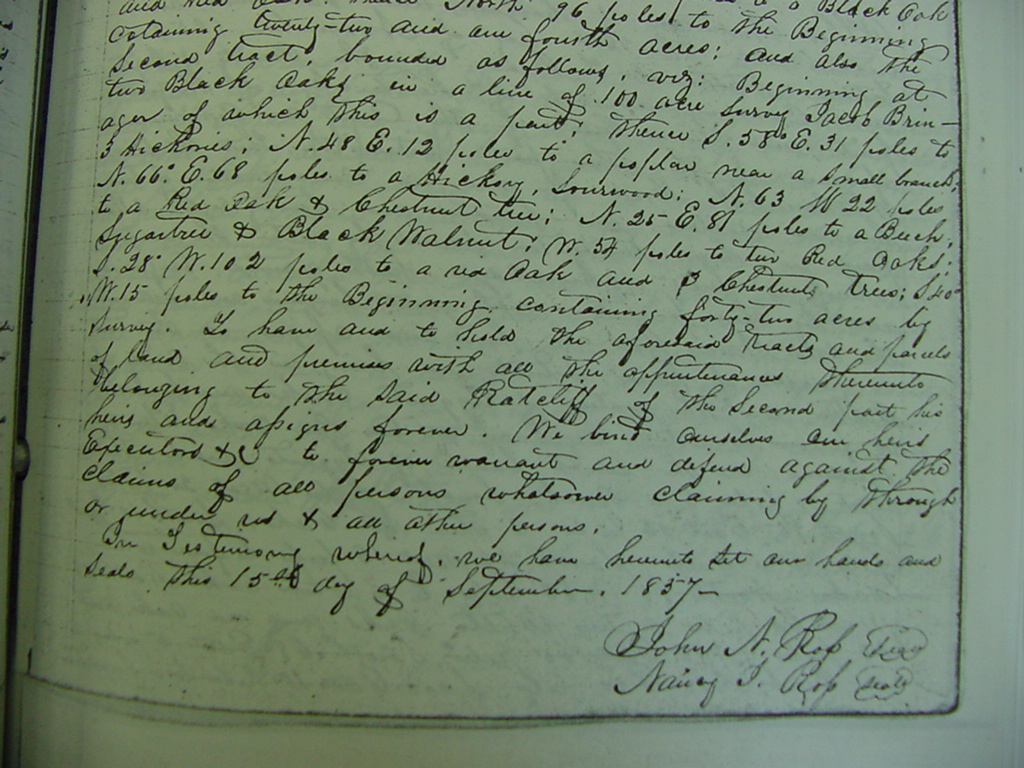 and Red Oak. thence North 96 poles to a Black Oak
cotaining twenty-two and one fourth acres; and also the
Second tract, bounded as follows, viz: Beginning at
two Black Oaks in a line of 100 acre survey Jacob Brin-
ager of which this is a part; thence S. 58° E. 31 poles to
3 Hickories; N. 48 E. 12 poles to a poplar near a small branch;
N. 66° E. 68 poles to a Hickory, Sourwood; N. 63 W 22 poles
to a Red Oak & Chestnut tree; N. 25 E. 81 poles to a Beech,
Sugartree & Black Walnut; W. 54 poles to two Red Oaks;
S. 28° W. 102 poles to a red Oak and 3 Chestnut trees; S 40°
W. 15 poles to the Beginning containing forty-two acres by
Survey. To have and to hold the aforesaid tracts and parcels
of land and premises with all the appurtenances thereunto
belonging to the said Ratcliff of the Second part his
heirs and assigns forever. We bind ourselves our heirs
Executors &c to forever warrant and defend against the
claims of all persons whatsoever claiming by through
or under us & all other persons.
In Testimony whereof, we have hereunto set our hands and
seals this 15th day of September. 1857-
John N. Ross Seal
Nancy J. Ross Seal